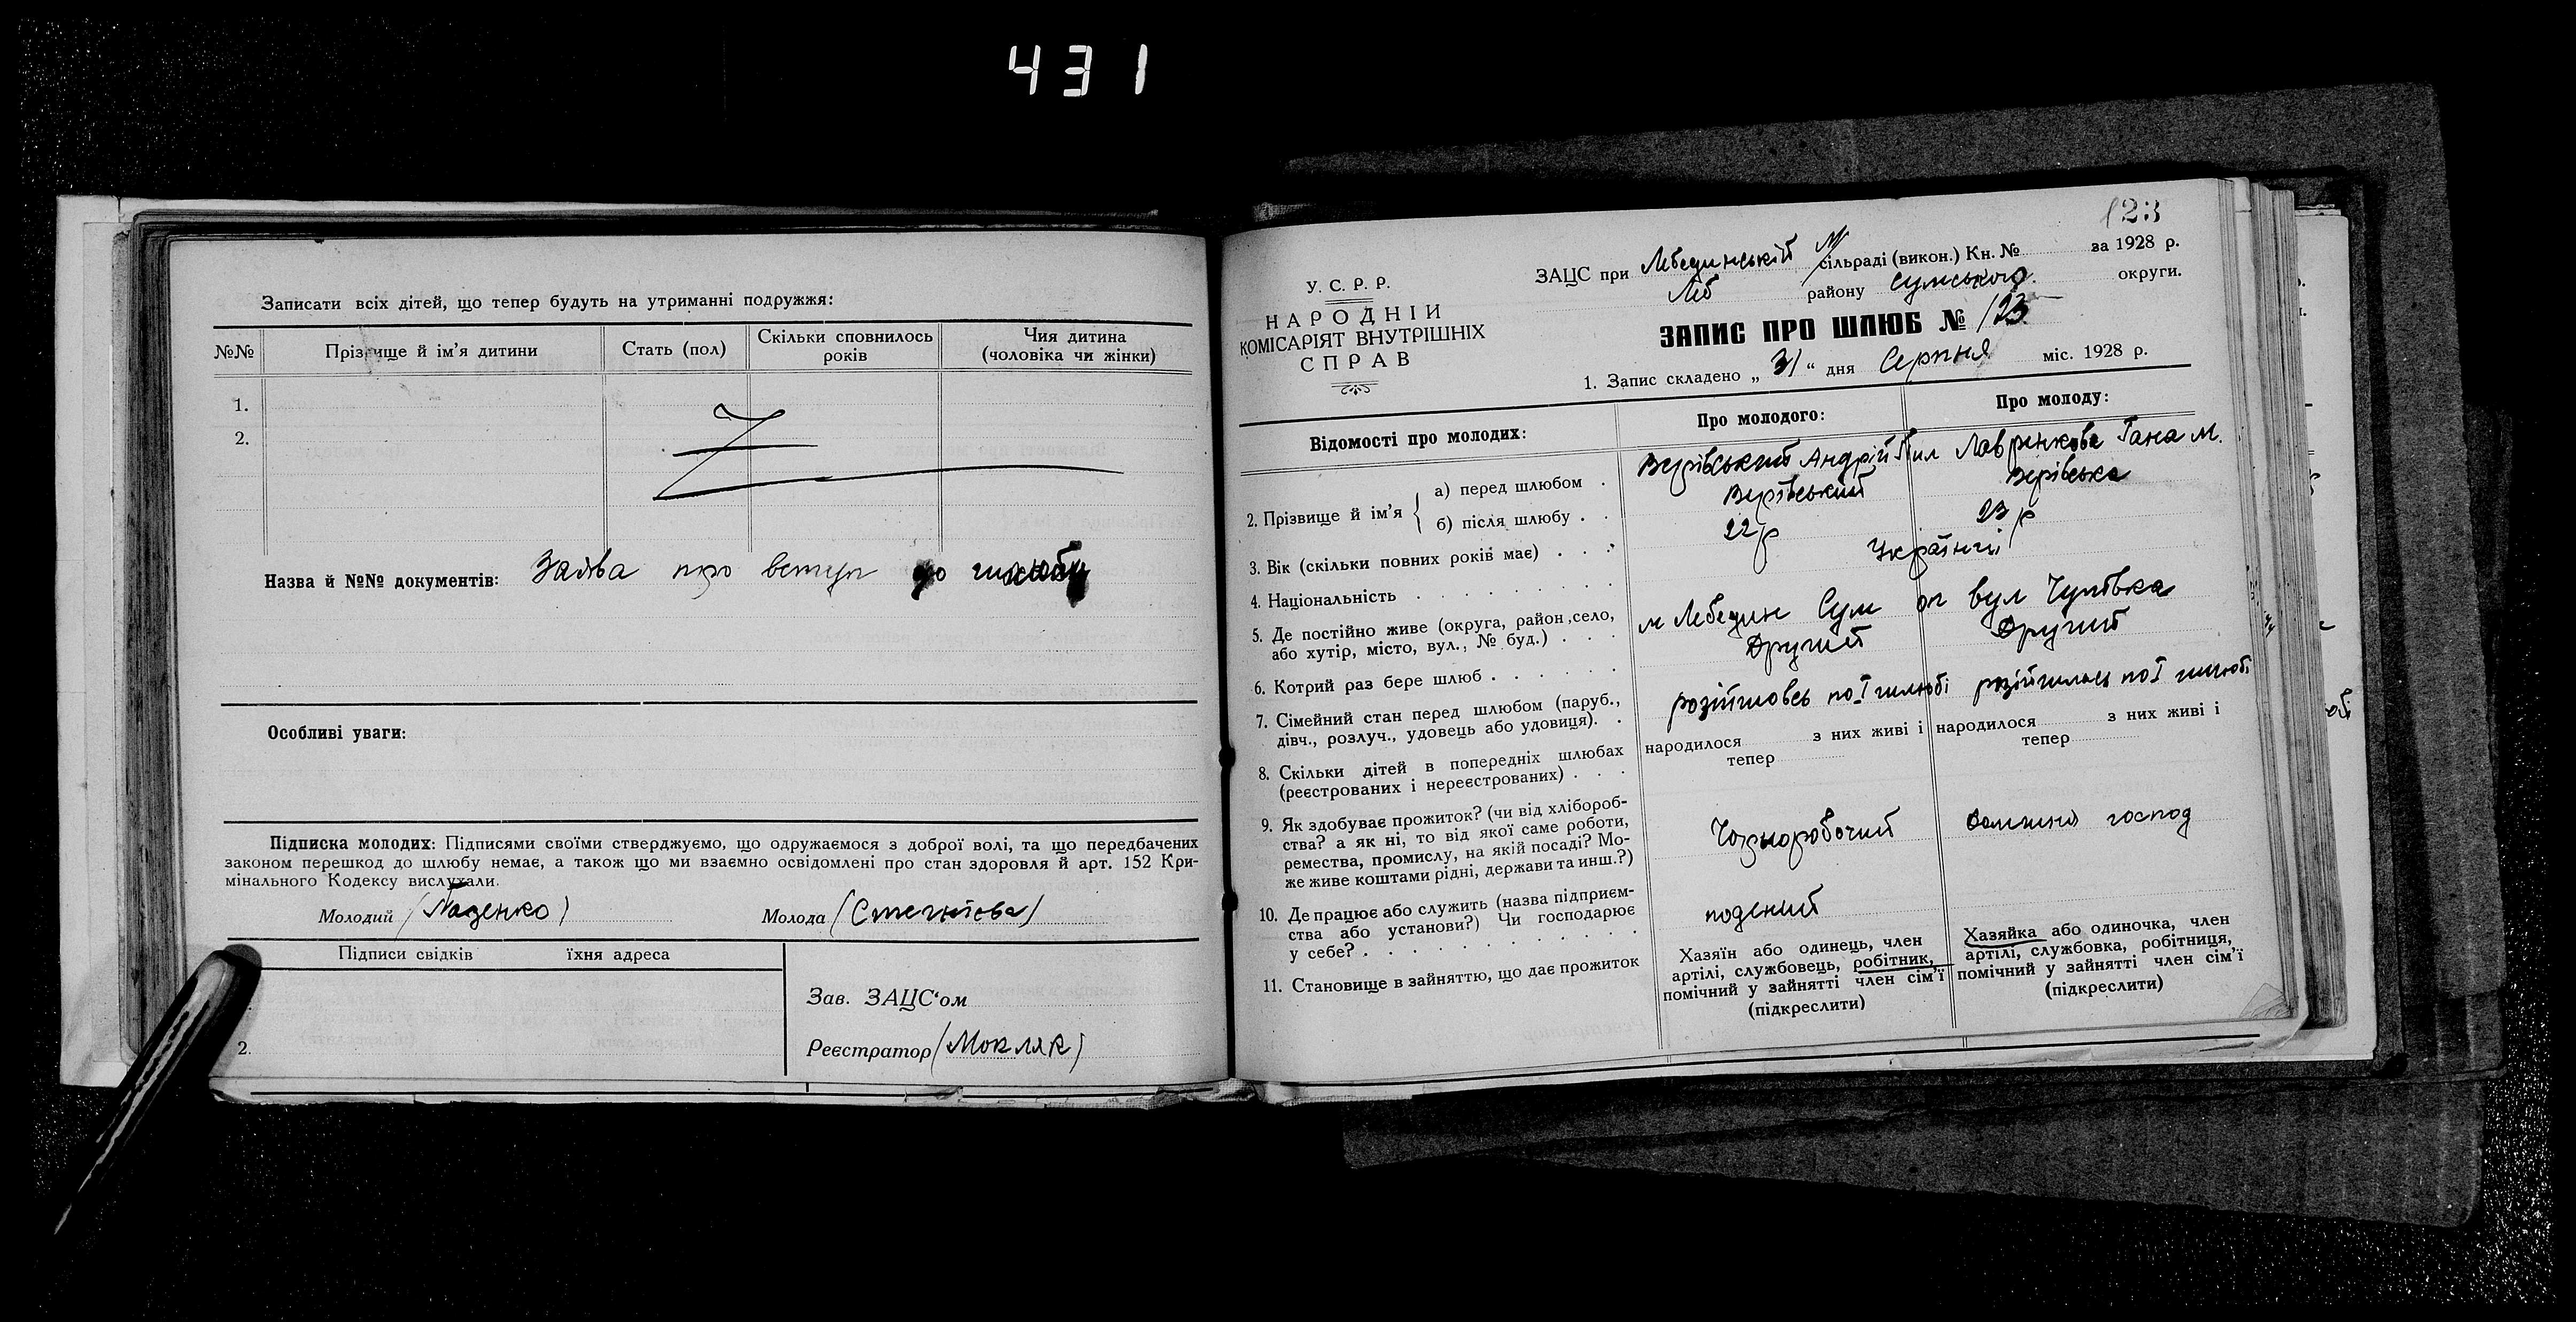 431
Записати всіх дітей, що тепер будуть на утриманні подружжя:
№№ Прізвище й ім'я дитини Стать (пол) Скільки сповнилось років Чия дитина (чоловіка чи жінки)
1.
2.
Назва й №№ документів: Заява про вступ до шлюбу
Особливі уваги:
Підписка молодих: Підписями своїми стверджуємо, що одружаємося з доброї волі, та що передбачених
законом перешкод до шлюбу немає, а також що ми взаємно освідомлені про стан здоровля й арт. 152 Кри-
мінального Кодексу вислухали.
Молодий (Пазенко) Молода
Підписи свідків їхня адреса
Зав. ЗАЦС'ом
2. Реєстратор (Мокляк)
123
У. С. Р. Р.
НАРОДНІЙ
КОМІСАРІЯТ ВНУТРІШНІХ
СПРАВ
ЗАЦС при Лебединській М/сільраді (викон.) Кн. № за 1928 р.
Леб району Сумського округи.
ЗАПИС ПРО ШЛЮБ № 123
1. Запис складено „ 31 “ дня Серпня міс. 1928 р.
Відомості про молодих: Про молодого: Про молоду:
2. Прізвище й ім'я { а) перед шлюбом . Верівський Андрій Пил Лавренкова Гана М.
б) після шлюбу . . Верівський Верівська
3. Вік (скільки повних років має) . . . 22 р 23 р
4. Національність . . . . . . . Українці
5. Де постійно живе (округа, район, село,
або хутір, місто, вул., № буд.) . . . м Лебедин Сум ок вул Чупівка
6. Котрий раз бере шлюб . . . . . . Другий Другий
7. Сімейний стан перед шлюбом (паруб.,
дівч., розлуч., удовець або удовиця). . розійшовсь по I шлюбі розійшлась по I шлюбі
8. Скільки дітей в попередніх шлюбах
(реєстрованих і нереєстрованих) . . .
народилося з них живі і
тепер
народилося з них живі і
тепер
9. Як здобуває прожиток? (чи від хлібороб-
ства? а як ні, то від якої саме роботи,
ремества, промислу, на якій посаді? Мо-
же живе коштами рідні, держави та инш.?)
Чорноробочий домашня господ
10. Де працює або служить (назва підприєм-
ства або установи?) Чи господарює
у себе? . . . . . . . . . .
подений
11. Становище в зайняттю, що дає прожиток
Хазяїн або одинець, член
артілі, службовець, робітник,
помічний у зайнятті член сім'ї
(підкреслити)
Хазяйка або одиночка, член
артілі, службовка, робітниця,
помічний у зайнятті член сім'ї
(підкреслити)